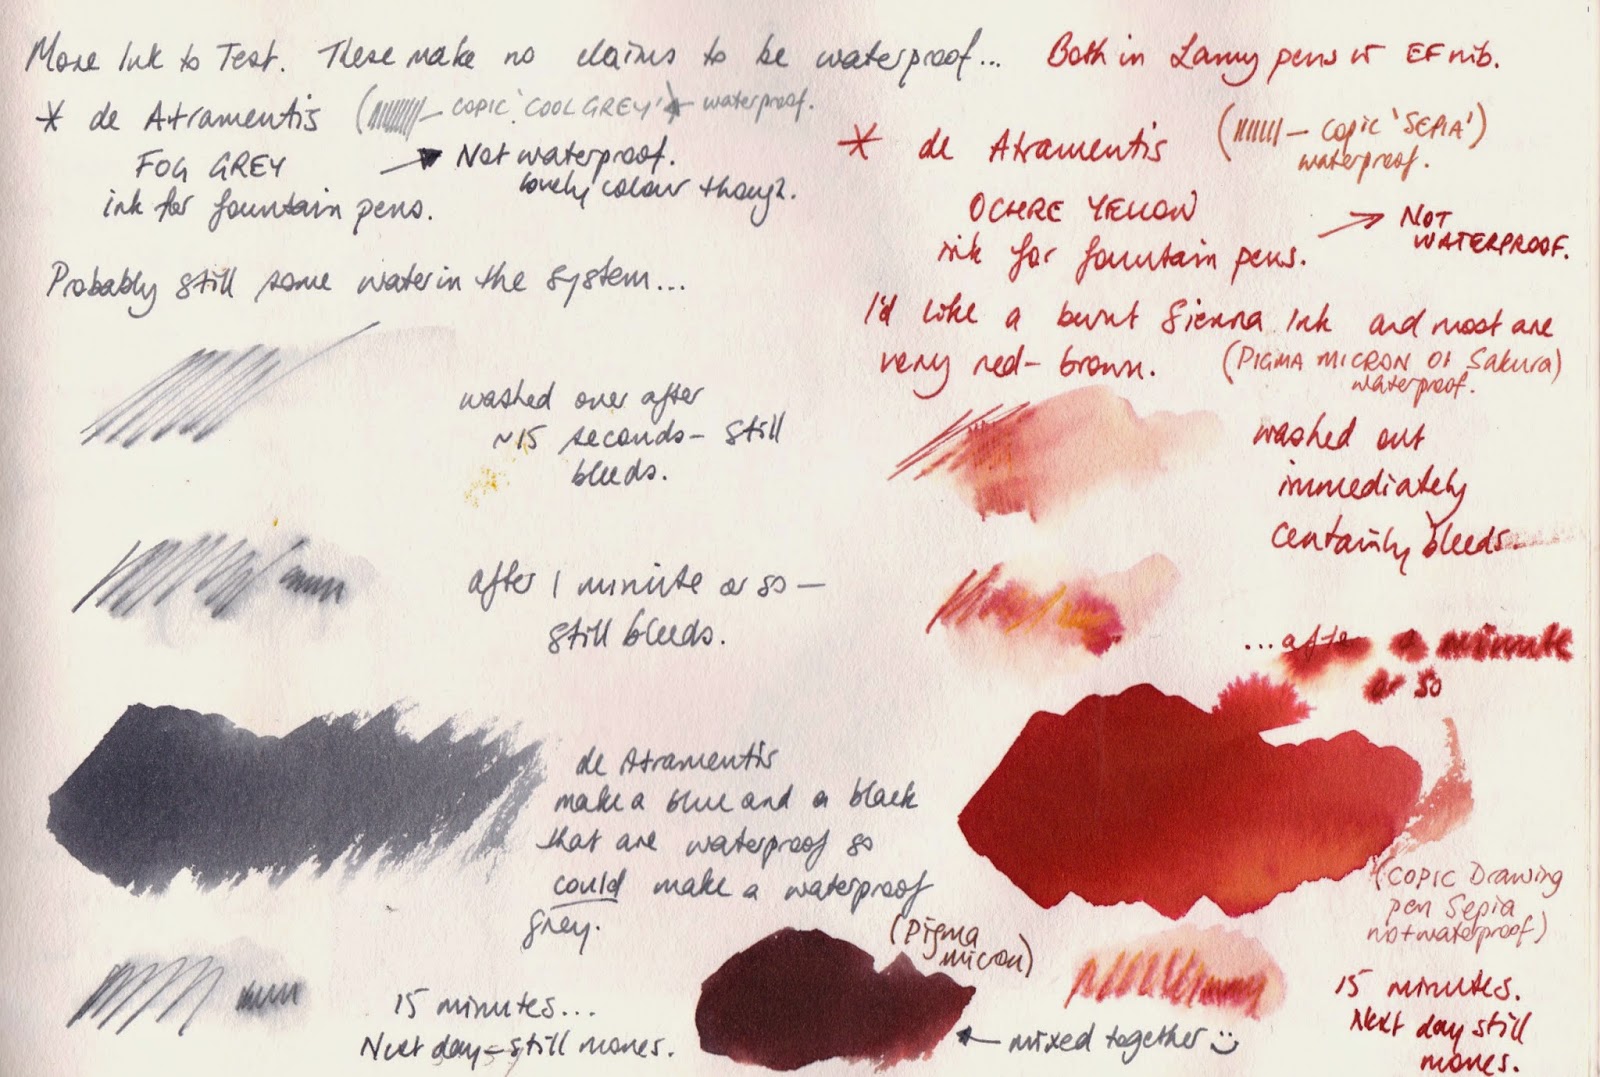 More Ink to Test. These make no claims to be waterproof... Both in Lamy pens w EF nib.
* de Atramentis (– COPIC 'COOL GREY' waterproof.
FOG GREY → Not waterproof.
lovely colour though.
ink for fountain pens.
Probably still some water in the system...
washed over after
~15 seconds – still
bleeds.
after 1 minute or so –
still bleeds.
de Atramentis
make a blue and a black
that are waterproof so
could make a waterproof
grey.
15 minutes...
Next day – still moves.
* de Atramentis (– copic 'SEPIA')
waterproof.
OCHRE YELLOW
ink for fountain pens. → NOT
WATERPROOF.
I'd like a burnt Sienna Ink and most are
very red-brown. (PIGMA MICRON 01 Sakura)
waterproof.
washed out
immediately
certainly bleeds.
...after a minute
or so
(COPIC Drawing
pen Sepia
not waterproof)
(Pigma
micron)
← mixed together :)
15 minutes.
Next day still
moves.